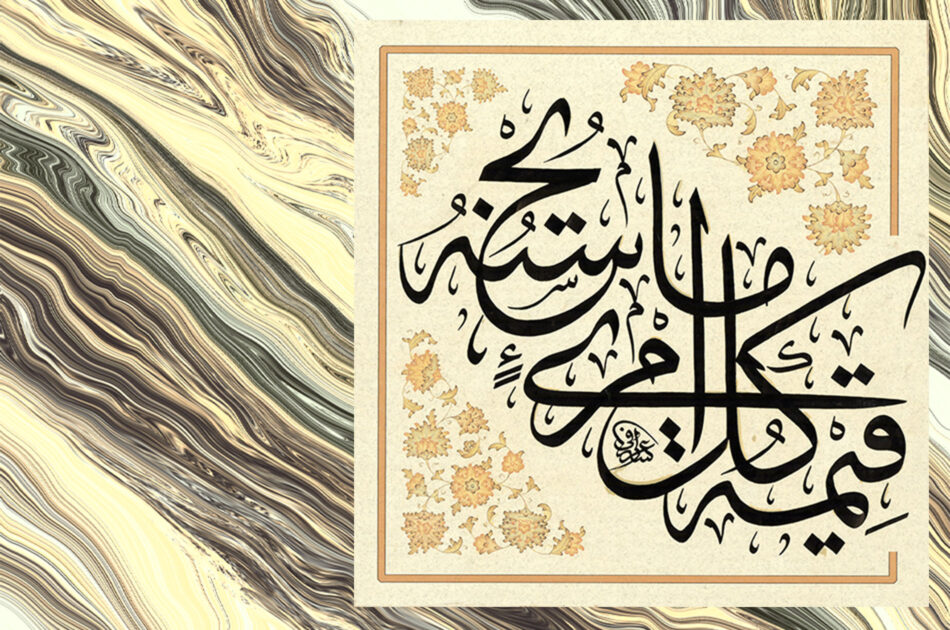 قِيمَةُ كُلِّ امْرِئٍ مَا يُحْسِنُهُ